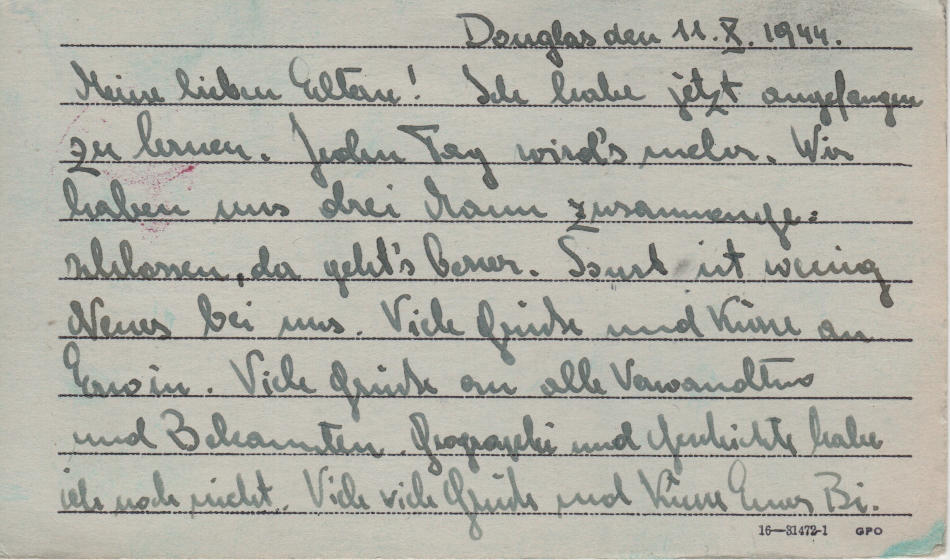 Douglas den 11.X. 1944.
Meine lieben Eltern! Ich habe jetzt angefangen
zu lernen. Jeden Tag wird's mehr. Wir
haben uns drei Mann zusammenge-
schlossen, da geht's besser. Sonst ist wenig
Neues bei uns. Viele Grüße und Küsse an
Erwin. Viele Grüße an alle Verwandten
und Bekannten. Geographie und Geschichte habe
ich noch nicht. Viele viele Grüße und Küsse Euer Bi.
16—31472-1 GPO